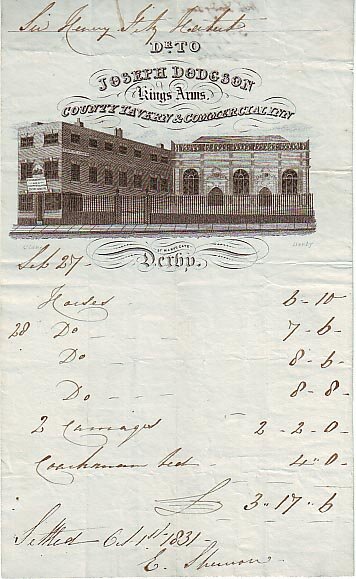 Sir Henry Fitz Herbert
Dr. TO
JOSEPH DODGSON
Kings Arms,
COUNTY TAVERN & COMMERCIAL INN
ST MARY'S GATE
Derby.
Sep 27 -
Horses 6 - 10
28 Do - - 7 - 6 -
Do 8 - 6 -
Do - - - 8 - 8 -
2 Carriages 2 - 2 - 0 -
Coachman bed - 4 - 0 -
£ 3 - 17 - 6
Settled Oct 1st 1831 -